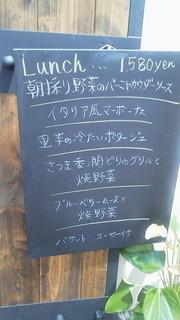 Lunch... 1580yen
朝採り野菜のバーニャカウダーソース
イタリア風マーボーナス
里芋の冷たいポタージュ
さつま香潤どりのグリルと
焼野菜
ブルーベリームースと
焼野菜
バケット コーヒー付